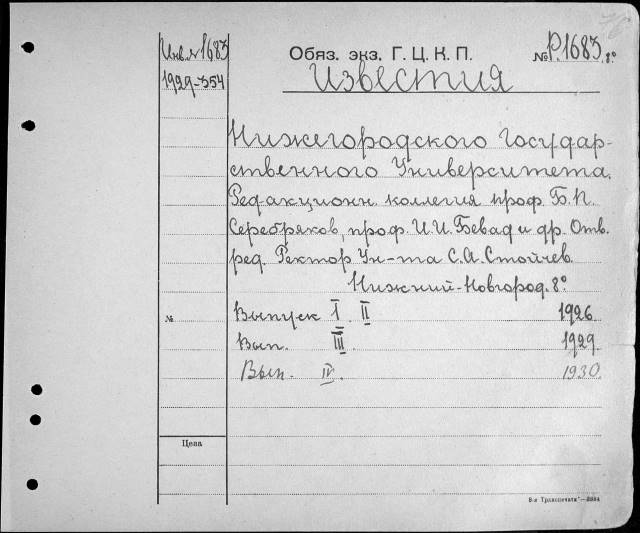 Инв. № 1683
Обяз. экз. Г. Ц. К. П.
№ Р.1683. 8°
1929-354
Известия
Нижегородского Государ-
ственного Университета.
Редакционн. коллегия проф. Б.П.
Серебряков, проф. И.И. Бевад и др. Отв.
ред. Ректор Ун-та С.А. Стойчев.
Нижний-Новгород. 8°
№ Выпуск I. II 1926.
Вып. III 1929.
Вып. IV. 1930.
Цена